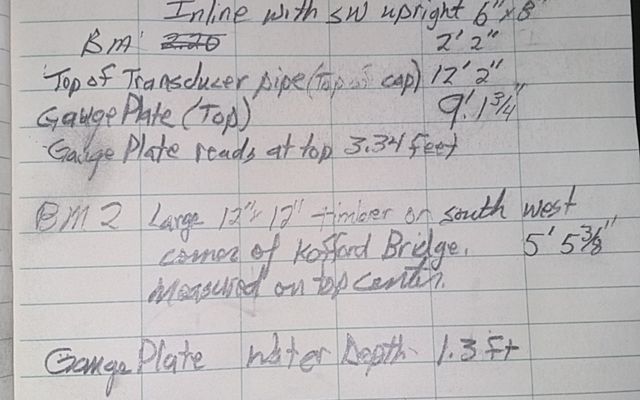 Inline with SW upright 6"x8"
BM 2.20 2' 2"
Top of Transducer pipe (Top of cap) 12' 2"
Gauge Plate (Top) 9' 1 3/4"
Gauge Plate reads at top 3.34 feet
BM 2 Large 12"x12" timber on south west
corner of Kofford Bridge. 5' 5 3/8"
Measured on top center.
Gauge Plate Water Depth 1.3 ft